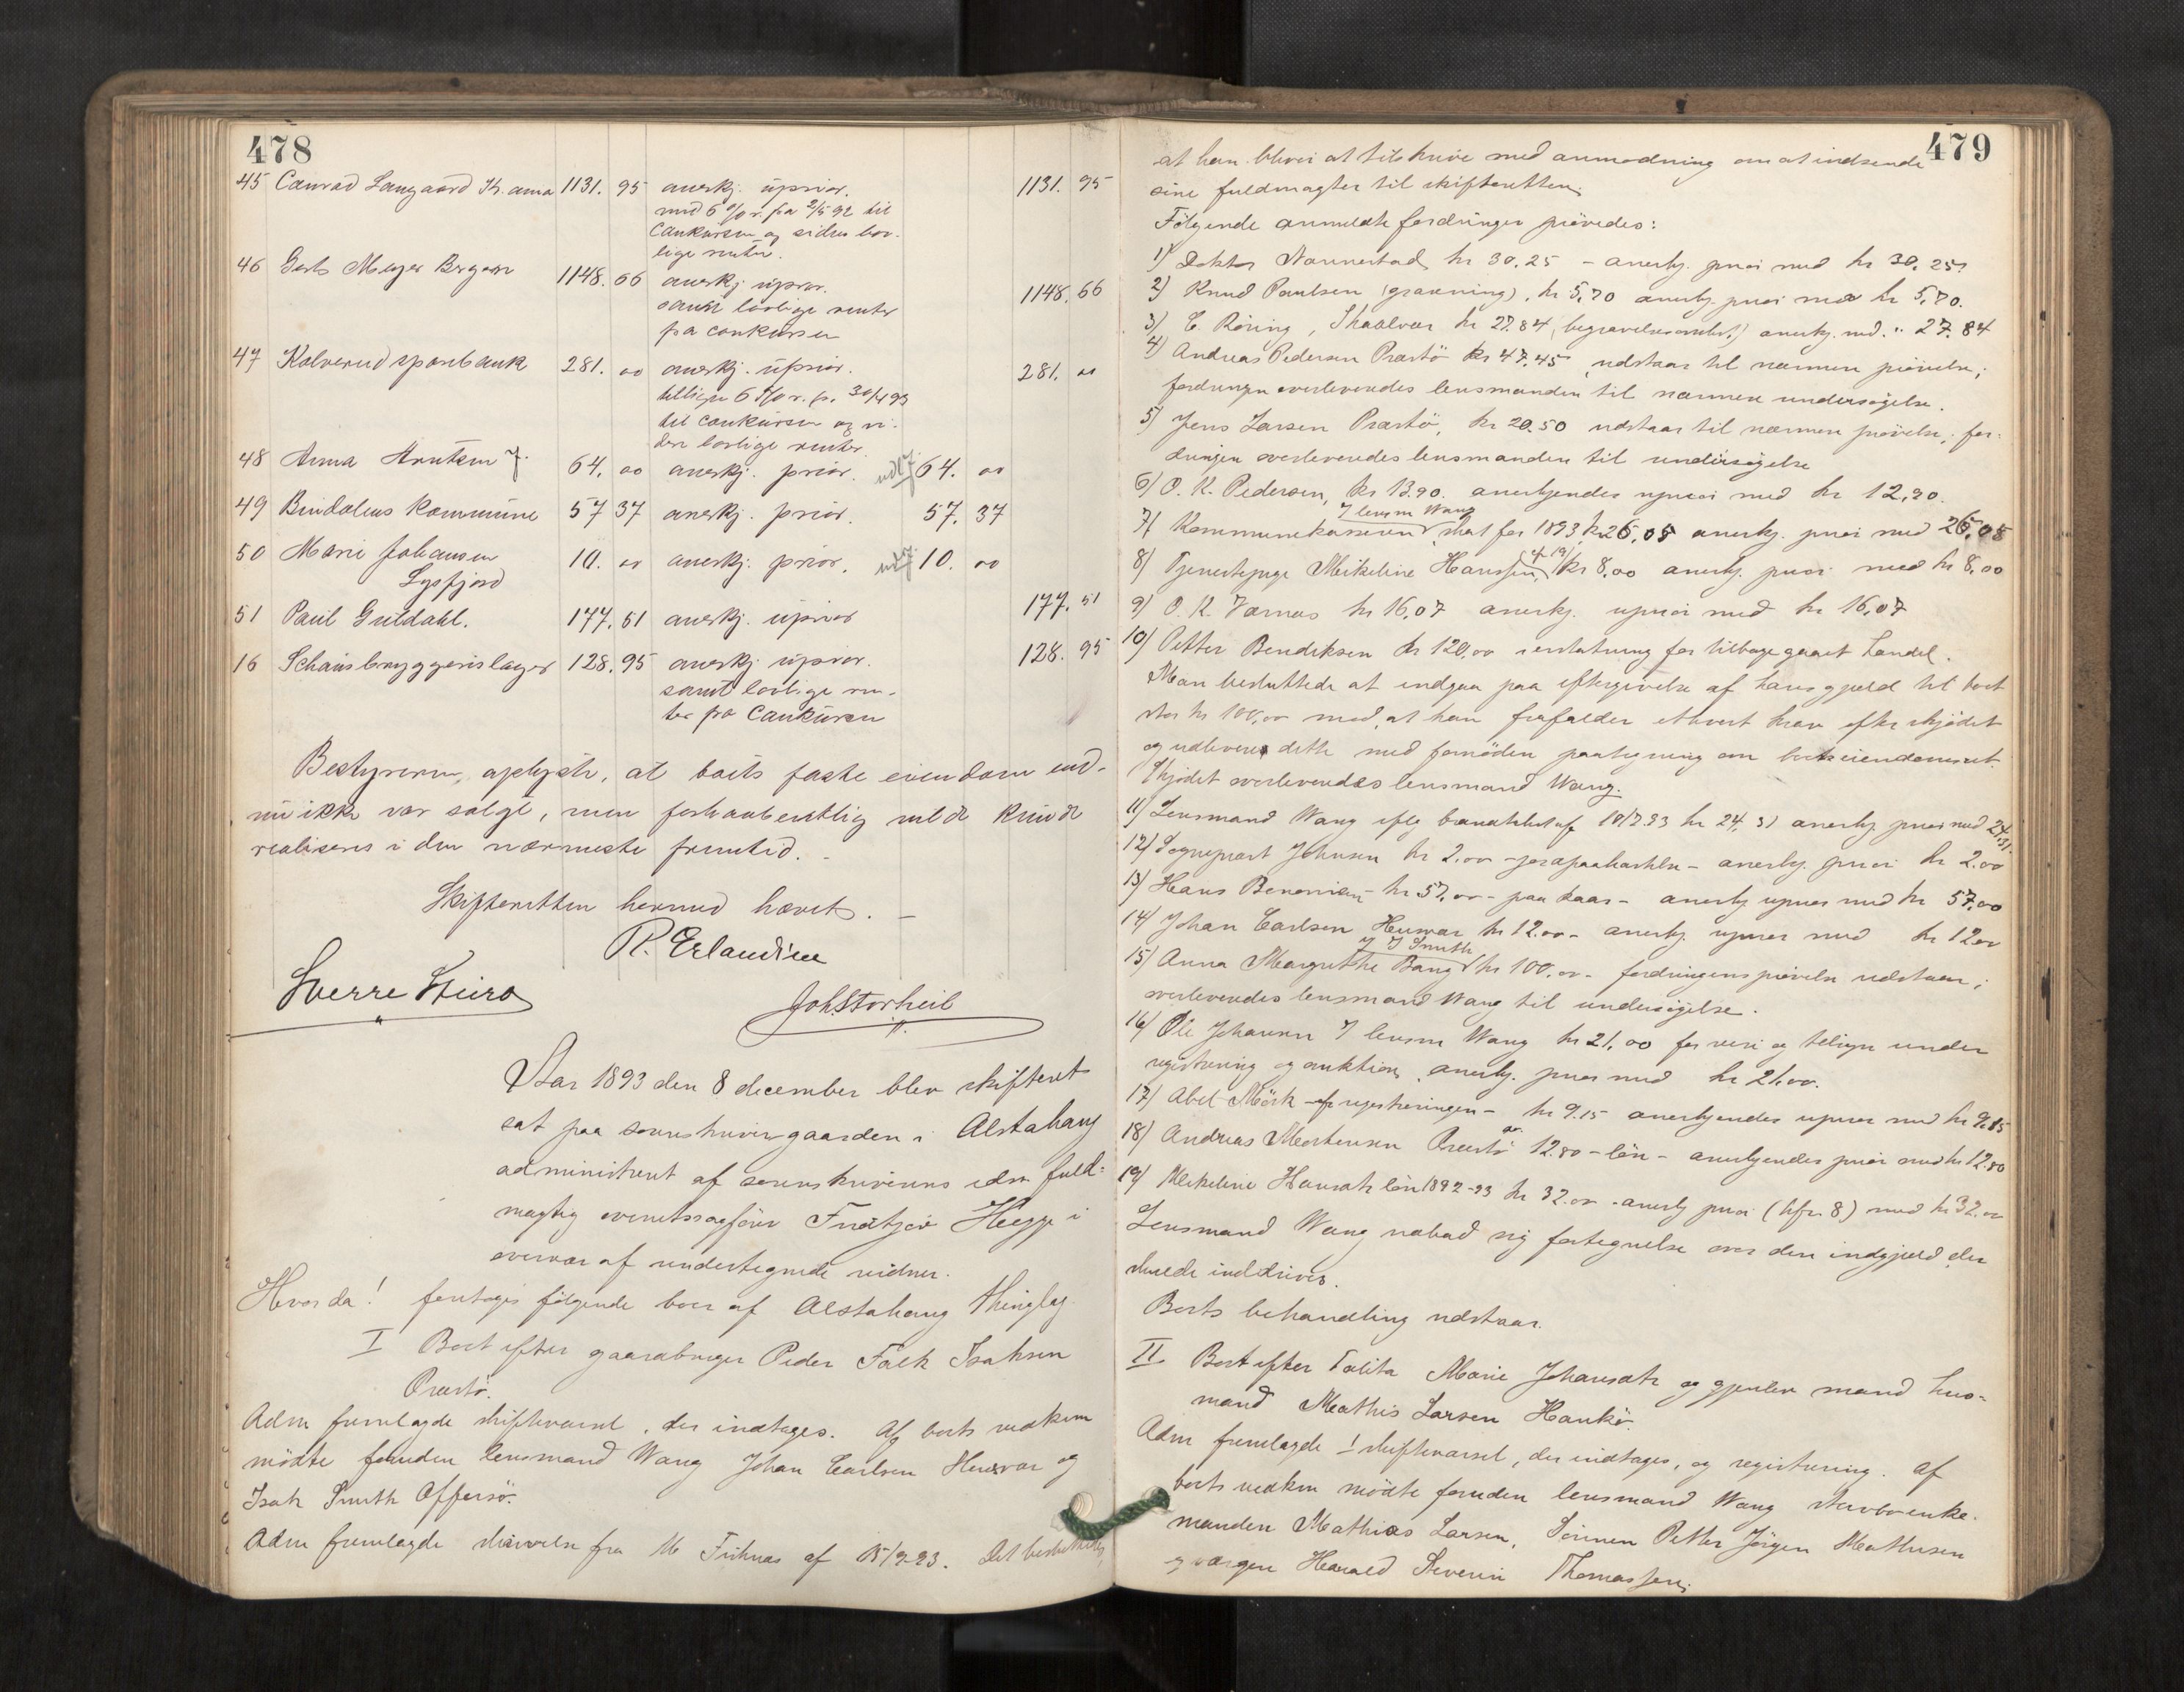 478
45 Conrad Langaard Kr.ania 1131. 95 anerkj. uprior. 1131. 95
med 6 % r. fra 2/5 92 til
Conkursen og siden lov-
lige renter.
46 Gerh Meyer Bergen 1148. 66 anerkj. uprior. 1148. 66
samt lovlige renter
fra conkursen
47 Kolverud sparebank 281. 00 anerkj. uprior. 281. 00
tilligem 6 % r. fr. 30/4 93
til conkursen og vi-
dere lovlige renter.
48 Anna Arntsen 64. 00 anerkj. prior. 64. 00
49 Bindalens kommune 57 37 anerkj. prior. 57. 37
50 Marie Johansen 10. 00 anerkj. prior. 10. 00
Lysfjord
51 Paul Guldahl. 177. 51 anerkj. uprior 177. 51
16 Schous bryggeris lager 128. 95 anerkj. uprior. 128. 95
samt lovlige ren-
ter fra Conkursen
Bestyreren oplyste, at boets faste eiendom end-
nu ikke var solgt, men forhaabentlig vilde kunde
realiseres i den nærmeste fremtid. -
Skifteretten hermed hævet. -
R. Erlandsen
Sverre Sturo
Joh Storheil
Aar 1893 den 8 december blev skifteret
sat paa sorenskrivergaarden i Alstahaug
administrert af sorenskriverens edsv. fuld-
mægtig overretssagfører Fridtjov Heegge i
overvær af undertegnede vidner.
Hvor da! foretoges følgende boer af Alstahaug thinglag
I Boet efter gaardbruger Peder Falch Isaksen
Præstø.
Adm fremlagde skiftevarsel, der indtages. Af boets vedkom
mødte foruden lensmand Wang Johan Carlsen Husvær og
Isak Smith Offersø.
Adm fremlagde skrivelse fra M Fuhnas af 15/9 93. Det besluttedes
479
at han bliver at tilskrive med anmodning om at indsende
sine fuldmagter til skifteretten.
Følgende anmeldte fordringer prøvedes:
1) Doktor Nannestad, kr 30,25 - anerkj. prior med kr 30,25.
2) Knud Paulsen (gravning), kr 5,70 anerkj. prior med kr 5,70.
3) C. Røring, Skaalvær kr 27.84 (begravelsesomkst.) anerkj. med. " 27.84
4) Andreas Pedersen Præstø kr 47.45, udstaar til nærmere prøvelse;
fordringen overleveredes lensmanden til nærmere undersøgelse.
5) Jens Larsen Præstø, kr 20.50 udstaar til nærmere prøvelse; for-
dringen overleveredes lensmanden til undersøgelse
6) O. K. Pedersen, kr 13.90. anerkjendes uprior med kr 12,90.
7) Kommunekassereren J lensm Wang skat for 1893 kr 26,05 anerkj. prior med 26,05
8) Tjenestepige Mikeline Hanssen, (cf 19) kr 8,00 anerkj. prior med kr 8,00
9) O. K. Værnes kr 16,07 anerkj. uprior med kr 16,07
10) Petter Bendiksen kr 120,00 erstatning for tilbagegaaet handel.
Man besluttede at indgaa paa eftergivelse af hans gjæld til boet
stor kr 100,00 mod, at han frafalder ethvert krav efter skjødet
og udleverer dette med fornøden paategning om boets eiendomsret.
Skjødet overleveredes lensmand Wang.
11) Lensmand Wang iflg brandtakst af 10/7 93 kr 24,31 anerkj prior med 24,31.
12) Sogneprest Johnsen kr 2.00 - jordpaakastelse - anerkj. prior kr 2.00
13) Hans Benoniem - kr 57.00 - paa kaar - anerkj uprior med kr 57,00
14) Johan Carlsen Husvær kr 12.00 - anerkj. uprior med kr 12.00
15) Anna Margrethe Bang J J Smith kr 100.00 - fordringens prøvelse udstaar;
overleveredes lensmand Wang til undersøgelse.
16) Ole Johansen J lensm Wang kr 21,00 for reise og tilsyn under
registrering og auktion, anerkj. prior med kr 21,00.
17) Abel Mørk - cfr registreringen - kr 9.15 anerkjendes uprior med kr 9.15
18) Andreas Mortensen Præstø kr. 12.80 - løn - anerkjendes prior med kr 12.80
19) Mikeline Hansdtr løn 1892-93 kr 32.00 - anerkj prior (kfr. 8) med kr 32.00
Lensmand Wang udbad sig fortegnelse over den indgjæld der
skulde inddrives.
Boets behandling udstaar.
II Boet efter Talita Marie Johansdtr og gjenlev mand hus-
mand Mathis Larsen Haukø.
Adm fremlagde 1 skiftevarsel, der indtages, og registrering. Af
boets vedkom mødte foruden lensmand Wang stervboenke-
manden Mathias Larsen, Sønnen Petter Jørgen Mathisen
og værgen Harald Severin Thomassen.